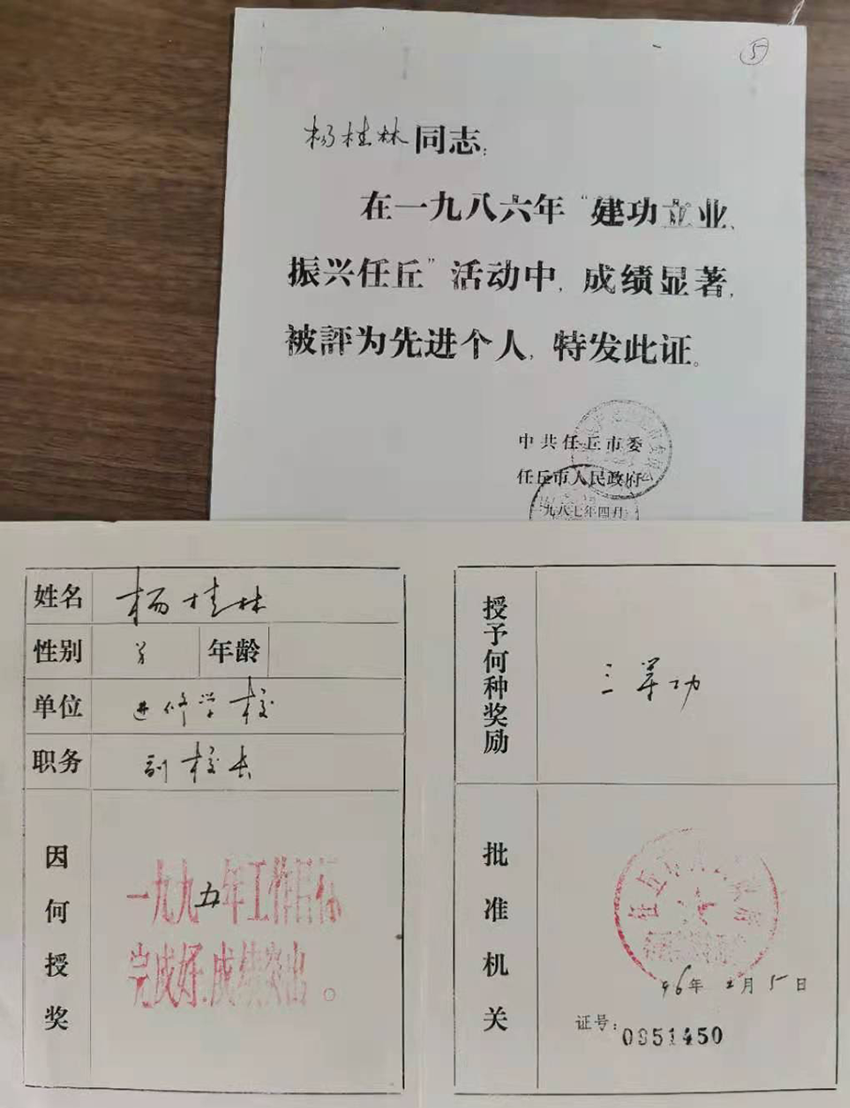 5
杨桂林同志:
在一九八六年“建功立业、
振兴任丘”活动中,成绩显著,
被評为先进个人,特发此证。
中共任丘市委
任丘市人民政府
一九八七年四月
姓名 杨桂林
性别 男 年龄
单位 进修学校
职务 副校长
因何授奖
一九九五年工作目标
完成好,成绩突出。
授予何种奖励
三等功
批准机关
任丘市人民政府
96年 月5日
证号:0951450